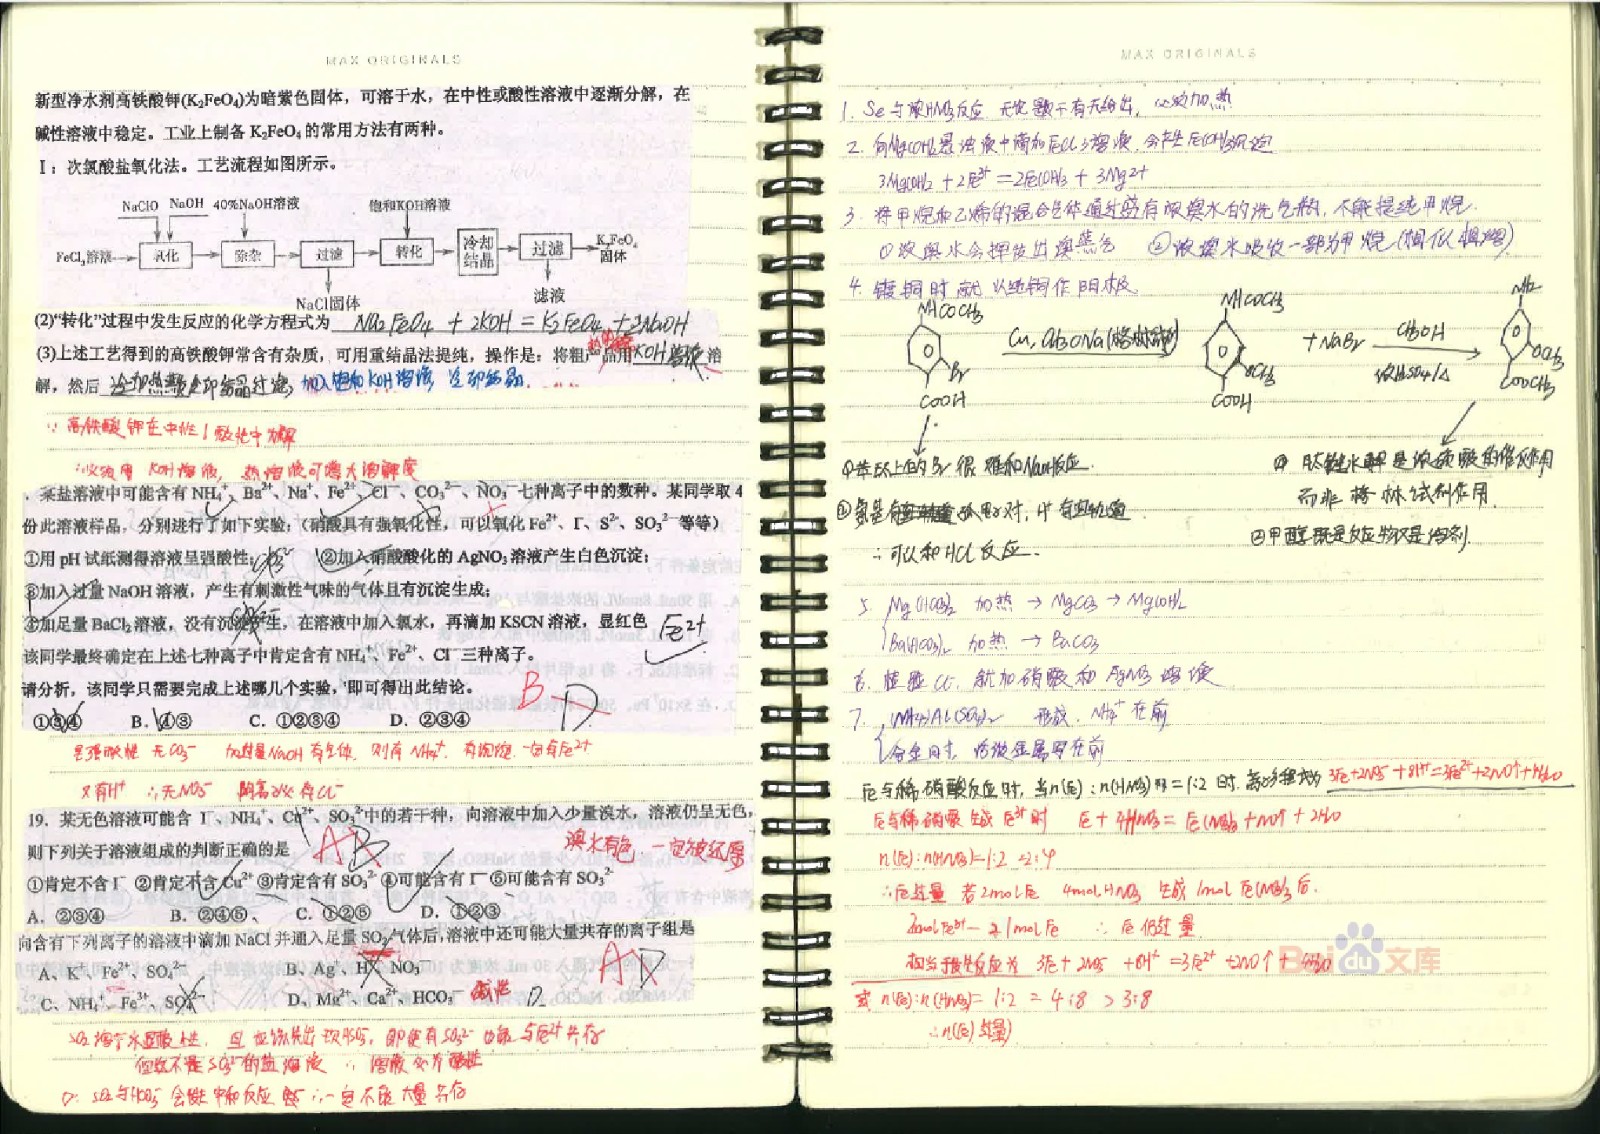 MAX ORIGINALS
新型净水剂高铁酸钾(K₂FeO₄)为暗紫色固体，可溶于水，在中性或酸性溶液中逐渐分解，在
碱性溶液中稳定。工业上制备 K₂FeO₄ 的常用方法有两种。
Ⅰ：次氯酸盐氧化法。工艺流程如图所示。
NaClO NaOH 40%NaOH溶液 饱和KOH溶液
FeCl₃溶液 氧化 除杂 过滤 转化 冷却结晶 过滤 K₂FeO₄固体
NaCl固体 滤液
(2)“转化”过程中发生反应的化学方程式为 Na₂FeO₄ + 2KOH = K₂FeO₄ + 2NaOH
(3)上述工艺得到的高铁酸钾常含有杂质，可用重结晶法提纯，操作是：将粗产品用 KOH溶液 溶
解，然后 加入饱和KOH溶液，冷却结晶
∵高铁酸钾在中性/酸化中分解
∴必须用 KOH溶液，热溶液可增大溶解度
．某盐溶液中可能含有 NH₄⁺、Ba²⁺、Na⁺、Fe²⁺、Cl⁻、CO₃²⁻、NO₃⁻七种离子中的数种。某同学取 4
份此溶液样品，分别进行了如下实验：（硝酸具有强氧化性，可以氧化 Fe²⁺、I⁻、S²⁻、SO₃²⁻等等）
①用 pH 试纸测得溶液呈强酸性； ②加入硝酸酸化的 AgNO₃ 溶液产生白色沉淀；
③加入过量 NaOH 溶液，产生有刺激性气味的气体且有沉淀生成；
④加足量 BaCl₂ 溶液，没有沉淀产生，在溶液中加入氯水，再滴加 KSCN 溶液，显红色 Fe²⁺
该同学最终确定在上述七种离子中肯定含有 NH₄⁺、Fe²⁺、Cl⁻三种离子。
请分析，该同学只需要完成上述哪几个实验，即可得出此结论。 B D
①③④ B. ①③ C. ①②③④ D. ②③④
呈强酸性 无CO₃²⁻ 加过量NaOH 有气体，则有 NH₄⁺，有沉淀，一定有Fe²⁺
又有H⁺ ∴无NO₃⁻ 阴离必有Cl⁻
19．某无色溶液可能含 I⁻、NH₄⁺、Cu²⁺、SO₃²⁻中的若干种，向溶液中加入少量溴水，溶液仍呈无色，
则下列关于溶液组成的判断正确的是 A B 溴水有色 一定被还原
①肯定不含 I⁻ ②肯定不含 Cu²⁺ ③肯定含有 SO₃²⁻ ④可能含有 I⁻ ⑤可能含有 SO₃²⁻
A．②③④ B．②④⑤、 C．①②⑤ D．①②③
向含有下列离子的溶液中滴加 NaCl 并通入足量 SO₂ 气体后，溶液中还可能大量共存的离子组是
A、K⁺、Fe²⁺、SO₄²⁻ B、Ag⁺、H⁺、NO₃⁻ A D
C、NH₄⁺、Fe³⁺、SO₄²⁻ D、Mg²⁺、Ca²⁺、HCO₃⁻ 碱性 D
SO₂ 溶于水显酸性，且 即使有SO₃²⁻也能与Fe²⁺共存
但此不是SO₃²⁻的盐溶液 ∴ 溶液
D: SO₂与HCO₃⁻会发生中和反应 ∴一定不能大量共存
MAX ORIGINALS
1. Se与浓HNO₃反应 无论题干有无给出，必须加热
2. 向Mg(OH)₂悬浊液中滴加FeCl₃溶液，会产生Fe(OH)₃沉淀
3Mg(OH)₂ + 2Fe³⁺ = 2Fe(OH)₃ + 3Mg²⁺
3. 将甲烷和乙烯的混合气体通过盛有浓溴水的洗气瓶，不能提纯甲烷.
①浓溴水会挥发出溴蒸气 ②浓溴水吸收一部分甲烷(相似相溶)
4. 镀铜时就以纯铜作阳极
NHCOCH₃ Br COOH Cu, CH₃ONa NHCOCH₃ OCH₃ COOH + NaBr CH₃OH 浓H₂SO₄/△ NH₂ OCH₃ COOCH₃
①苯环上的Br很难和NaOH反应.
② 氮是有 孤电子对，H⁺有空轨道
∴可以和HCl反应.
① 肽键水解是浓硫酸的催化作用
而非 作用.
②甲醇既是反应物又是溶剂.
5. Mg(HCO₃)₂ 加热 → MgCO₃ → Mg(OH)₂
Ba(HCO₃)₂ 加热 → BaCO₃
6. 检验Cl⁻，就加硝酸和AgNO₃溶液
7. (NH₄)Al(SO₄)₂ 形成，NH₄⁺在前
合金同时，活泼金属写在前
Fe与稀硝酸反应时，当n(Fe):n(HNO₃)=1:2时，离子方程式为 3Fe+2NO₃⁻+8H⁺=3Fe²⁺+2NO↑+4H₂O
Fe与稀硝酸生成Fe³⁺时 Fe + 4HNO₃ = Fe(NO₃)₃ + NO↑ + 2H₂O
n(Fe):n(HNO₃)=1:2 =2:4
∴Fe过量 若2molFe 4molHNO₃ 生成1molFe(NO₃)₃后.
2molFe³⁺ — 1molFe ∴ Fe仍过量
相当于发生反应为 3Fe + 2NO₃⁻ + 8H⁺ = 3Fe²⁺ + 2NO↑ + 4H₂O
或 n(Fe):n(HNO₃) = 1:2 = 4:8 > 3:8
∴n(Fe)过量)
Baidu文库